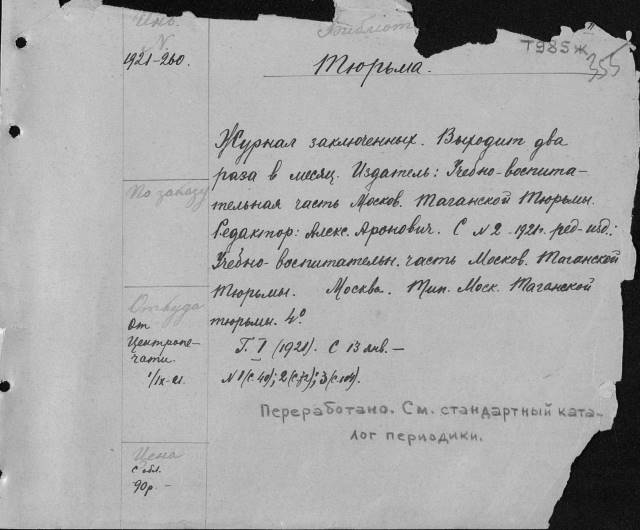 Инв.
N.
1921-260.
Библиот
Т985ж
355
Тюрьма.
Журнал заключенных. Выходит два
раза в месяц. Издатель: Учебно-воспита-
тельная часть Москов. Таганской Тюрьмы.
Редактор: Алекс. Аронович. С N 2 - 1921г. ред-изд.:
Учебно-воспитательн. часть Москов. Таганской
Тюрьмы. Москва. Тип. Моск. Таганской
тюрьмы. 4°
Г. I (1921). С 13 янв. —
N 1 (с 40); 2 (с 72); 3 (с 104).
Переработано. См. стандартный ката-
лог периодики.
По заказу
Откуда
От
Центропе-
чати.
1/IX-21.
Цена
с обл.
90р. -